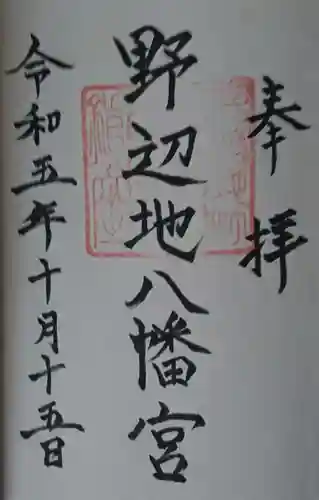 奉拝
野辺地八幡宮
令和五年十月十五日